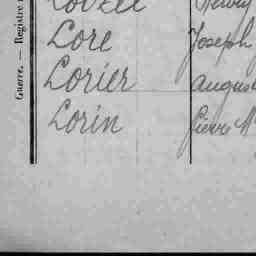 Guerre. — Registre
Lore Joseph
Lorier August
Lorin Pierre M